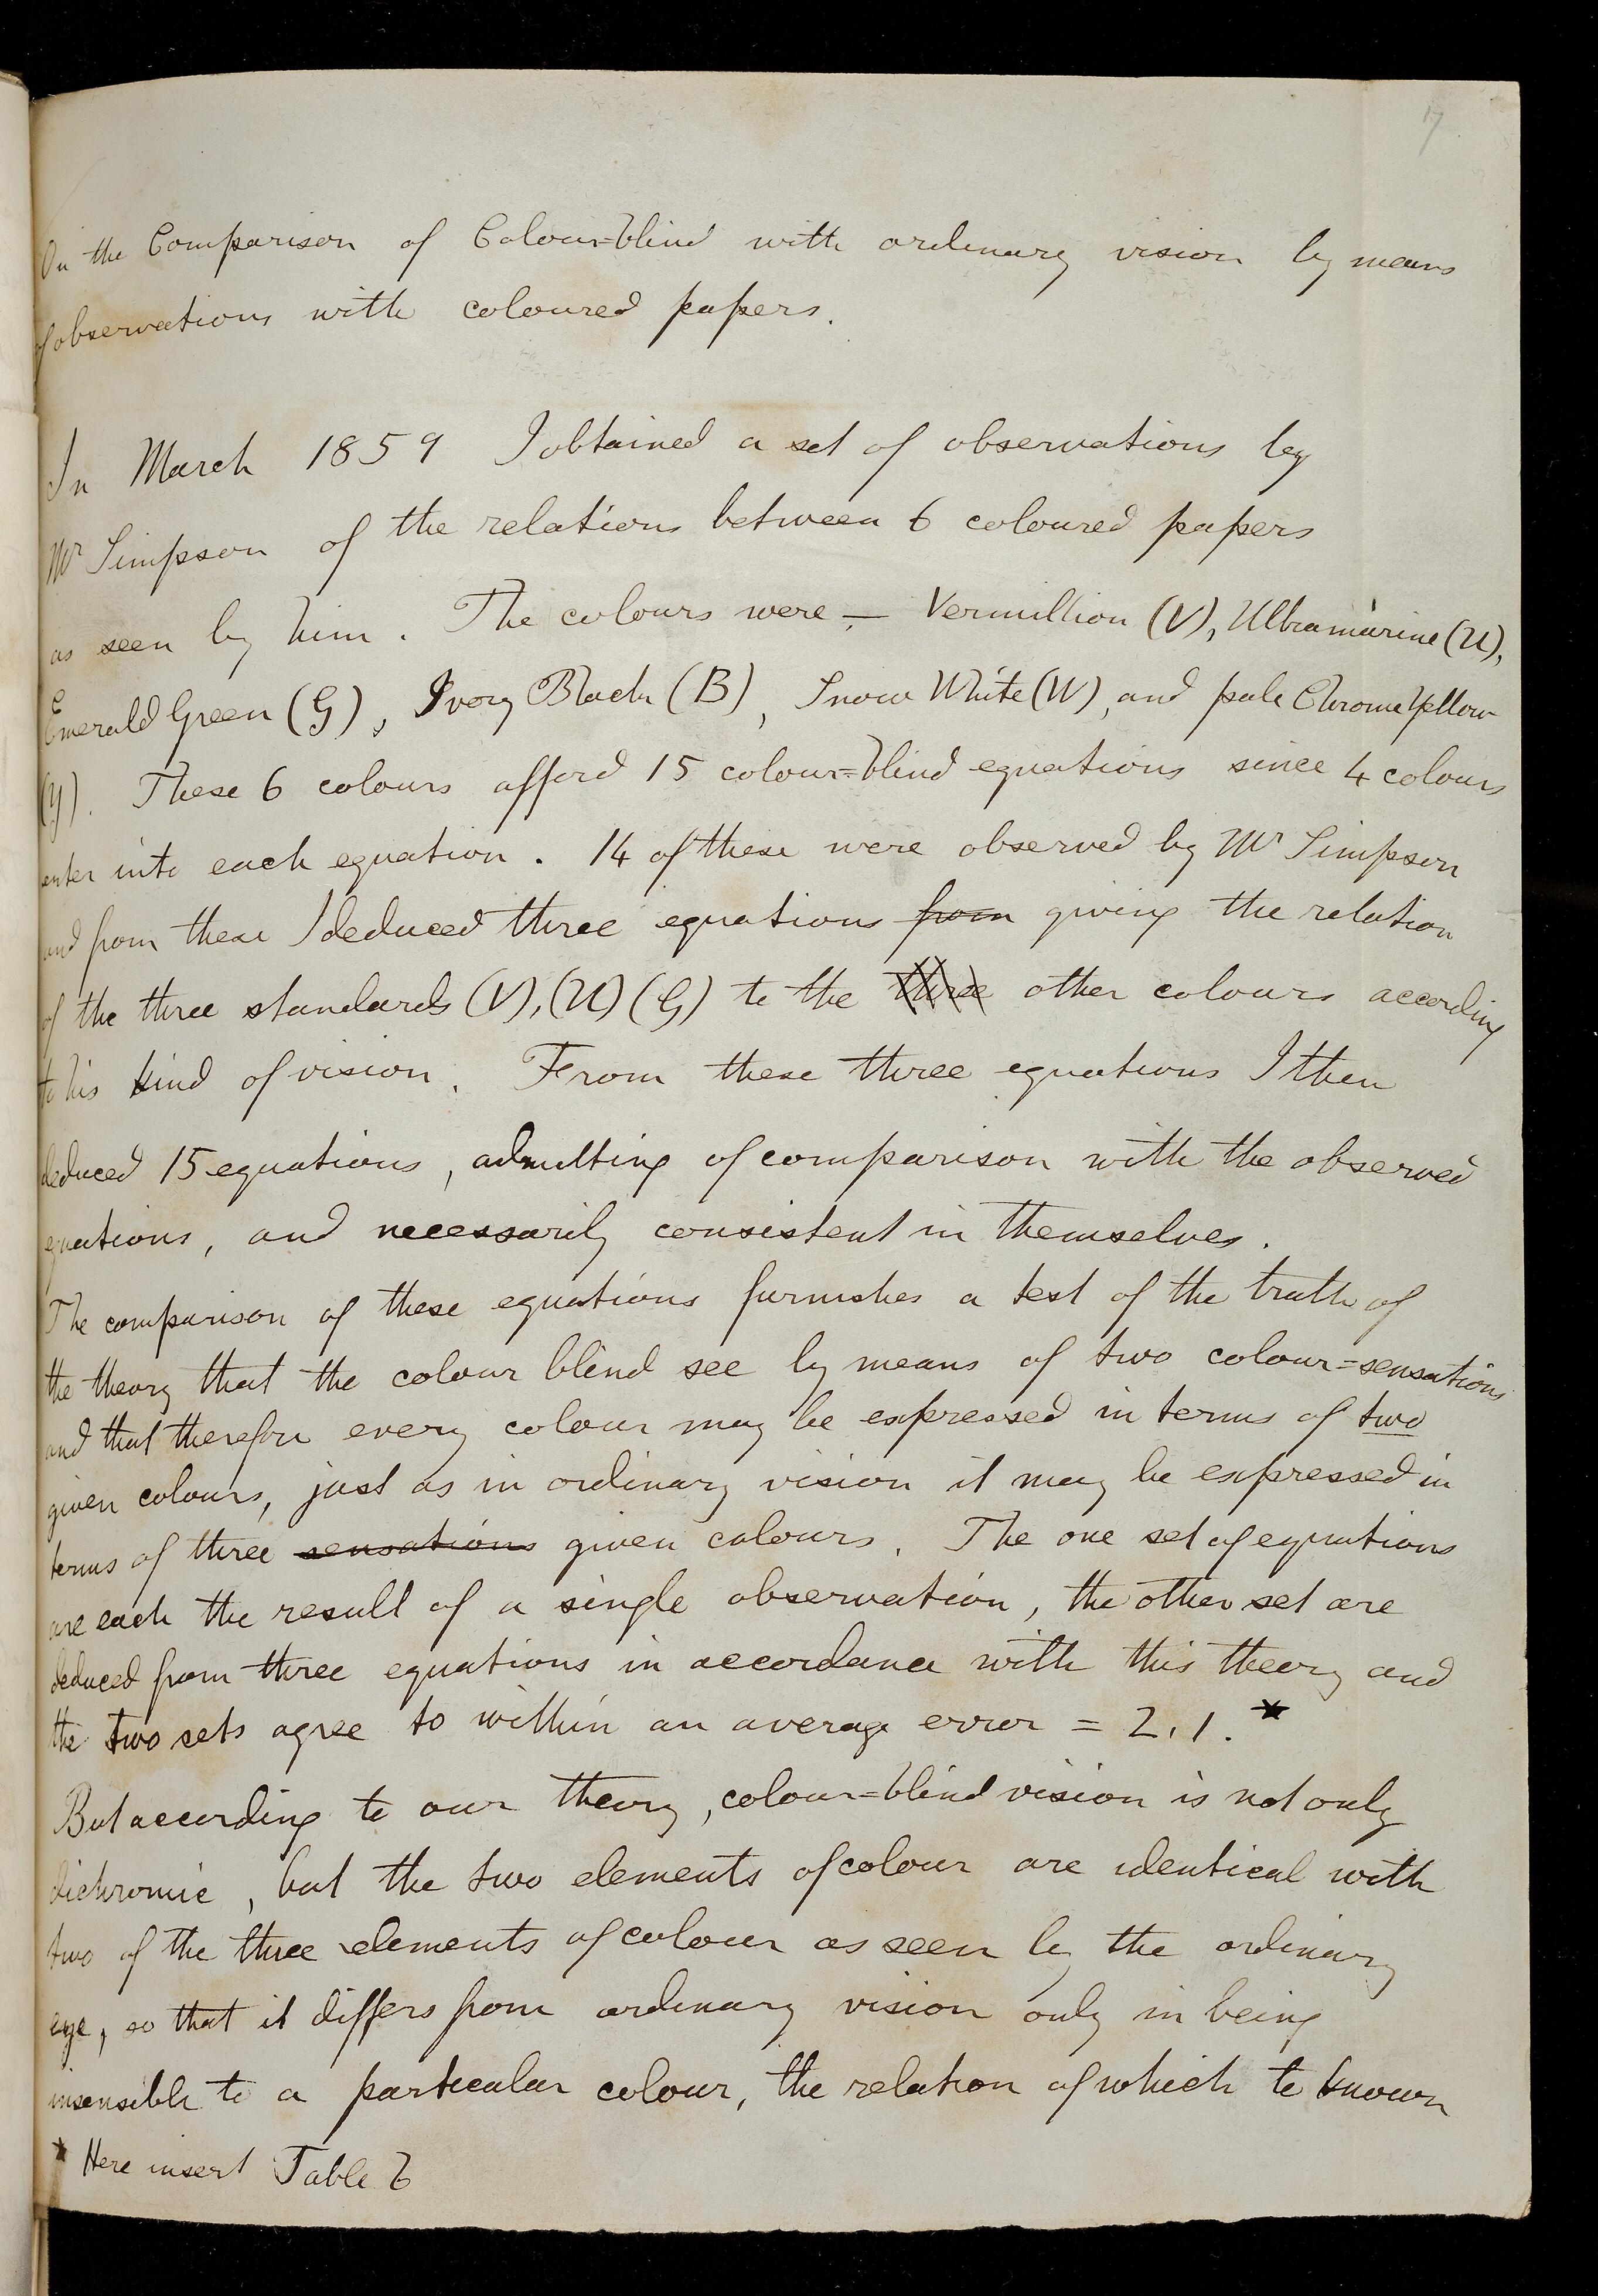 17
On the Comparison of Colour=blind with ordinary vision by means
of observations with coloured papers.
In March 1859 I obtained a set of observations by
Mr Simpson of the relations between 6 coloured papers
as seen by him. The colours were — Vermillion (V), Ultramarine (U),
Emerald Green (G), Ivory Black (B), Snow White (W), and pale Chrome Yellow
(Y). These 6 colours afford 15 colour=blind equations since 4 colours
enter into each equation. 14 of these were observed by Mr Simpson
and from these I deduced three equations from giving the relation
of the three standards (V), (U) (G) to the three other colours according
to his kind of vision. From these three equations I then
deduced 15 equations, admitting of comparison with the observed
equations, and necessarily consistent in themselves.
The comparison of these equations furnishes a test of the truth of
the theory that the colour blind see by means of two colour=sensations
and that therefore every colour may be expressed in terms of two
given colours, just as in ordinary vision it may be expressed in
terms of three sensations given colours. The one set of equations
are each the result of a single observation, the other set are
deduced from three equations in accordance with this theory and
the two sets agree to within an average error = 2.1.*
But according to our theory, colour=blind vision is not only
dichromic, but the two elements of colour are identical with
two of the three elements of colour as seen by the ordinary
eye, so that it differs from ordinary vision only in being
insensible to a particular colour, the relation of which to known
* Here insert Table 6